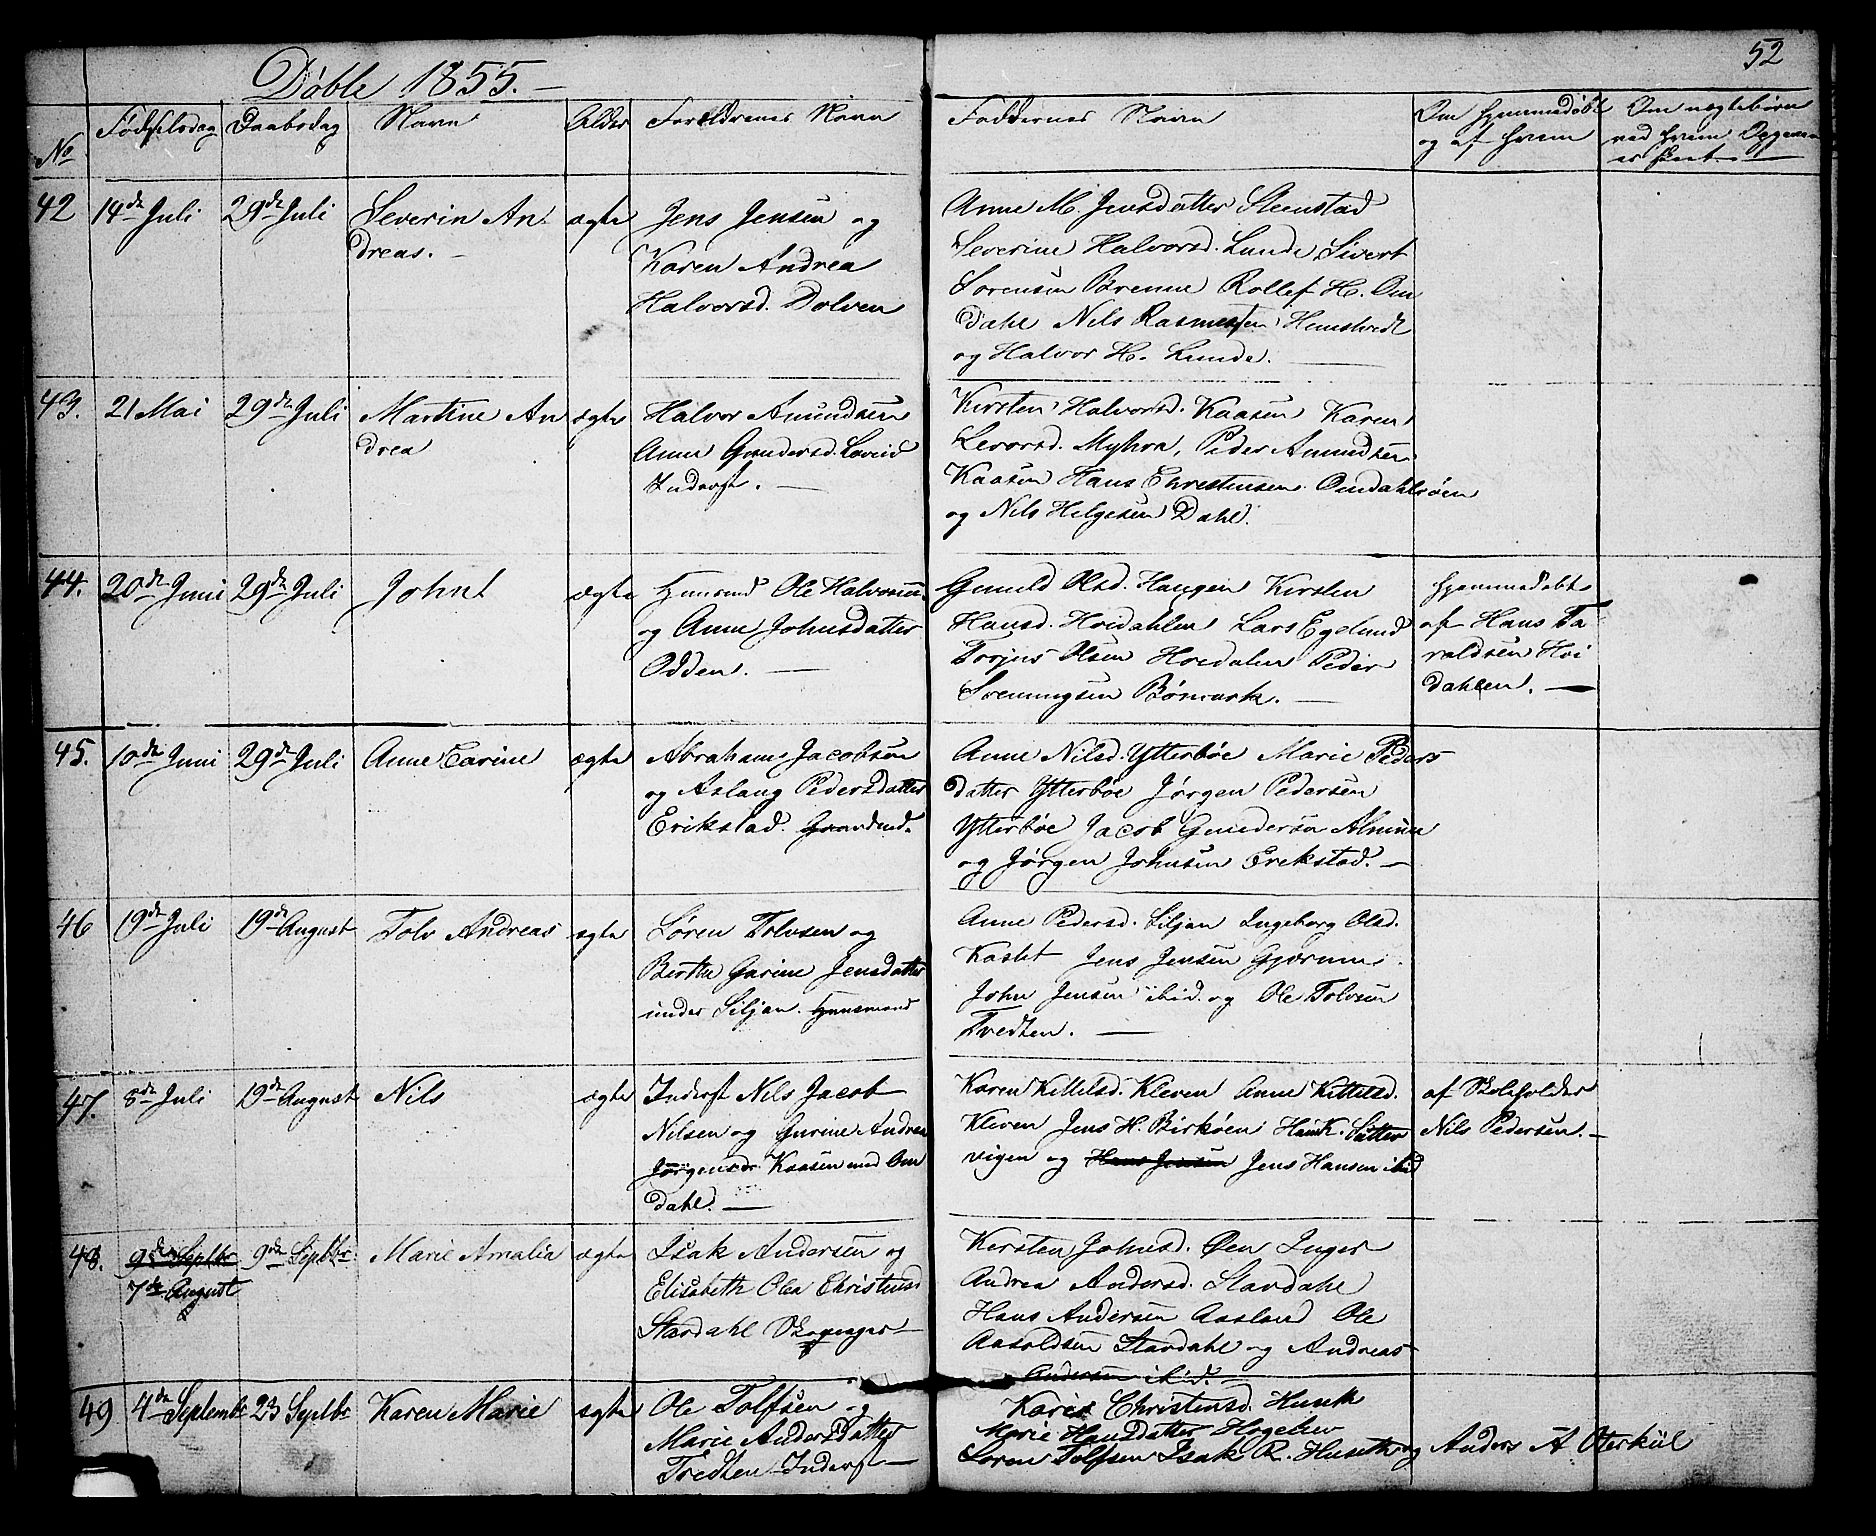 52
Døbte 1855. —
No Fødselsdag Daabsdag Navn Alder Forældrenes Navn Faddernes Navn Om hjemmedøbt Om uægtebørn
og af hvem ved hvem Opgaven
er skeet. —
42 14de Juli 29de Juli Severin An ægte Jens Jensen og
dreas. — Karen Andrea
Halvorsd. Dolven
Anne M. Jensdatter Steenstad
Severine Halvorsd. Lunde Sivert
Sørensen Brenne Rollef H. Om
dahl Nils Rasmussen Hemstvedt
og Halvor H. Lunde.
43. 21 Mai 29de Juli Martine An ægte Halvor Amundsen
drea Anne Gundersd. Loveid
Inderst. —
Kirsten Halvorsd. Kaasen Karen
Levorsd. Myhra, Peder Amundsen
Kaasen Hans Christensen Omdahlsøen
og Nils Helgesen Dahl.
44. 20de Juni 29de Juli John ægte Huusmd Ole Halvorsen
og Anne Johnsdatter
Odden. —
Gunild Olsd. Haugen Kirsten
Hansd. Hvidahlen Lars Egelund
Torjus Olsen Hvidalen Peder
Svenungsen Børmark. —
hjemmedøbt
af Hans Ta
raldsen Hvi
dahlen. —
45. 10de Juni 29de Juli Anne Carine ægte Abraham Jacobsen
og Aslaug Pedersdatter
Erikstad. Gaardmd.
Anne Nilsd. Ytterbøe Marie Peders
datter Ytterbøe Jørgen Pedersen
Ytterbøe Jacob Gundersen
og Jørgen Johnsen Erekstad. —
46 19de Juli 19de August Tolv Andreas ægte Søren Tolvsen og
Berthe Garine Jensdatter
under Siljan. Huusmand
Anne Pedersd. Siljan Ingeborg Olsd.
Kastet Jens Jensen Gjærum
John Jensen ibid. og Ole Tolvsen
Tvedten. —
47. 8de Juli 19de August Nils ægte Inderst Nils Jacob
Nilsen og Gurine Andrea
Jørgensdr. Kaasen med Om
dahl. —
Karen Kittilsd. Kleven Anne Kittilsd.
Kleven Jens H. Birkøen Han K. Sætter
vigen og Hans Jensen Jens Hansen ibid
af Skoleholder
Nils Pedersen. —
48. 9de Septbr 9de Septbr Marie Amalia ægte Isak Andersen og
7de August Elisabeth Olea Christensd
Stavdahl Skoganger —
Kersten Johnsd. Øen Inger
Andrea Andersd. Stavdahl
Hans Andersen Aasland Ole
Aasoldsen Stavdahl og Andreas
Andersen ibid. —
49 4de Septembr 23 Septbr Karen Marie ægte Ole Tolfsen og
Marie Andersdatter
Tredten Inderst —
Karis Christensd. Huseth
Marie Hansdatter Hogelien
Søren Tolfsen Isak R. Huseth og Anders A Oterkiil